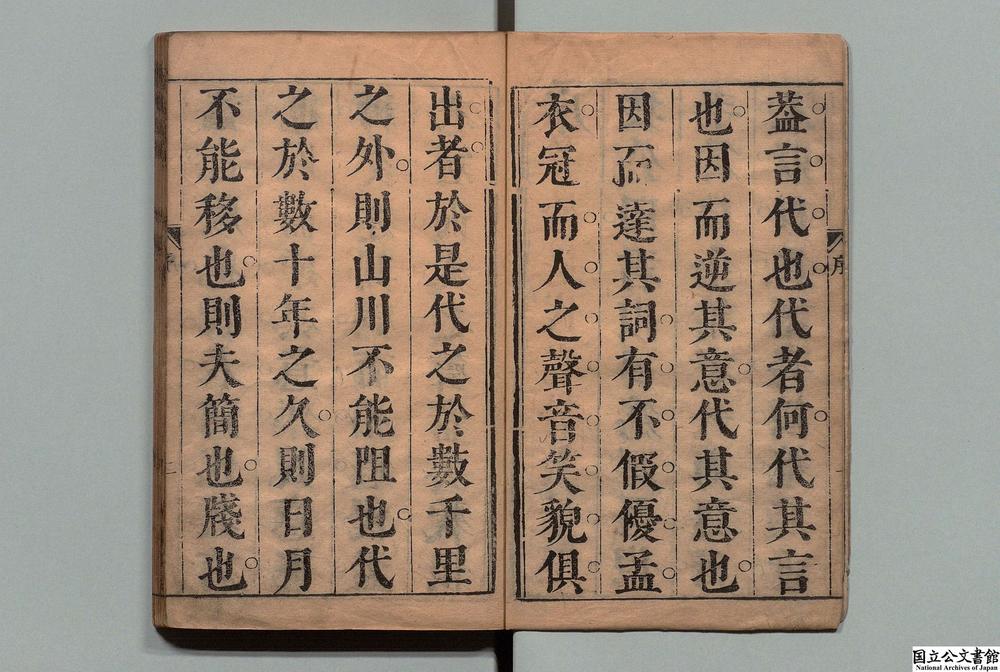 葢言代也代者何代其言
也因而逆其意代其意也
因而達其詞有不假優孟
衣冠而人之聲音笑貌俱
出者於是代之於數千里
之外則山川不能阻也代
之於數十年之久則日月
不能移也則夫簡也牋也
序
二
国立公文書館
National Archives of Japan